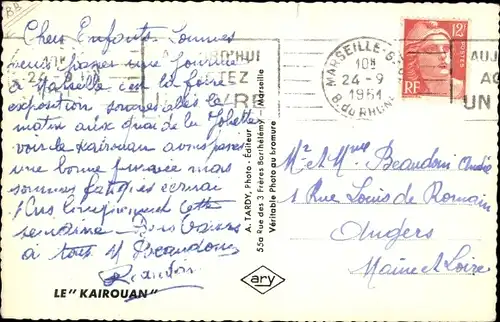 Chers Enfants. Sommes
venus passer une journée
à Marseille c'est la foire
exposition sommes allés le
matin aux quai de la Joliette
voir le Kairouan avons passé
une bonne journée mais
sommes fatigués
cette
semaine Bons Baisers
à tous Beaudoin
LE "KAIROUAN"
A. TARDY, Photo - Éditeur
55a Rue des 3 Frères Barthélémy - Marseille
Véritable Photo au bromure
ary
MARSEILLE-G
10H
24-9
1951
B. DU RHONE
12F
RF
POSTES
AUJ
AC
UN
RD'HUI
TEZ
24-9
Mr & Mme Beaudoin André
1 Rue Louis de Romain
Angers
Maine et Loire